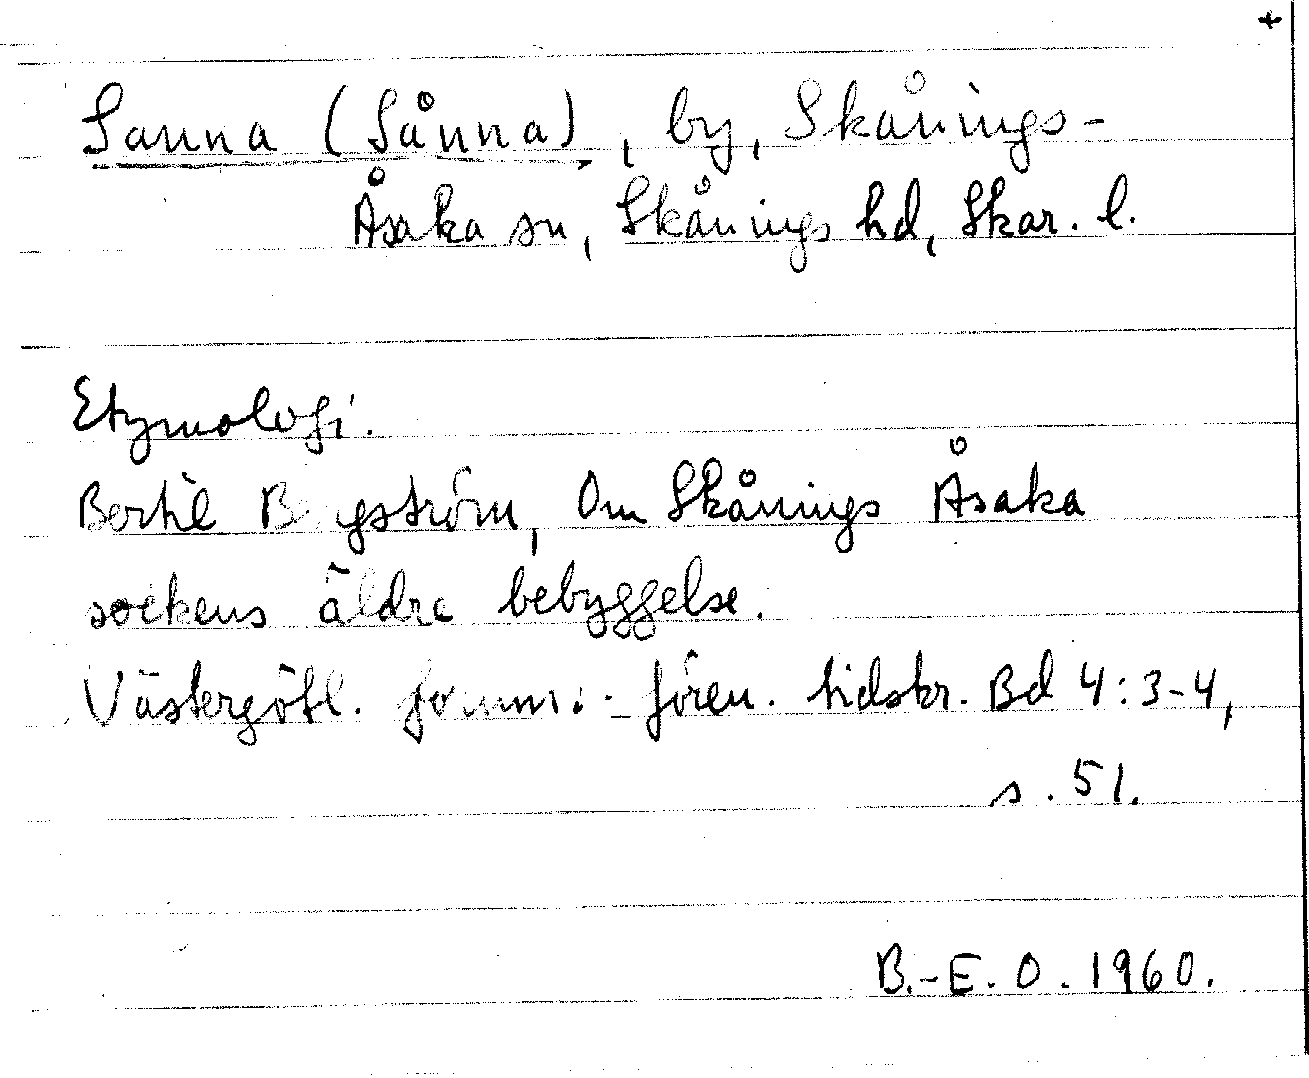 +
Sanna (Sånna), by, Skånings-
Åsaka sn, Skånings hd, Skar. l.
Etymologi.
Bertil Bergström, Om Skånings Åsaka
sockens äldre bebyggelse.
Västergötl. fornm.-fören. tidskr. Bd 4:3-4,
s. 51.
B.-E. O. 1960.